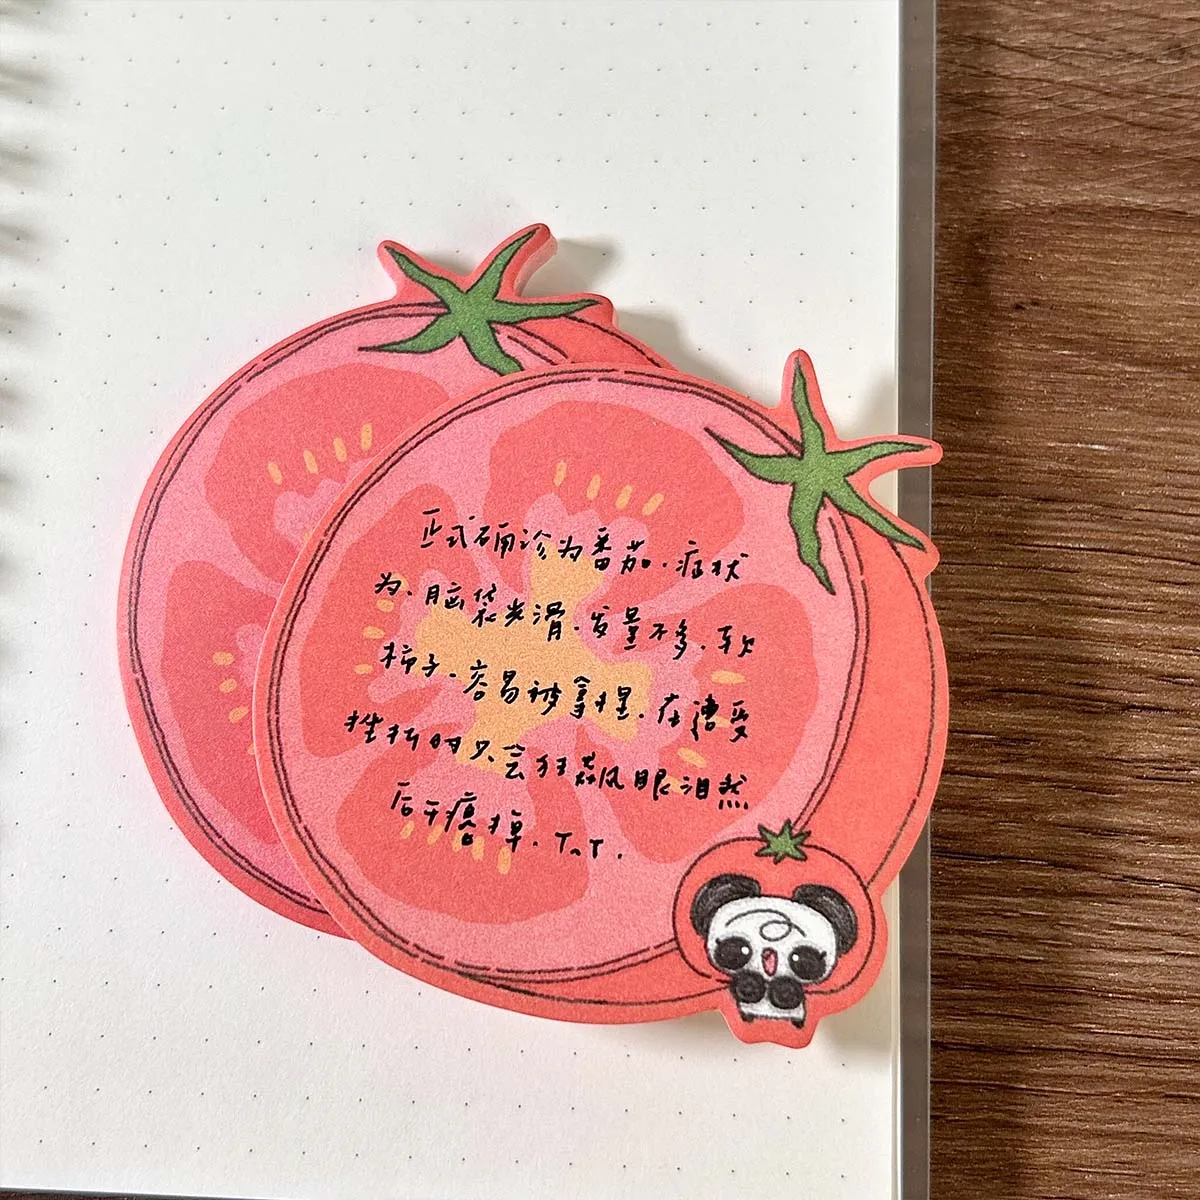 正式确诊为番茄.症状
为.脑袋光滑.发量不多.软
柿子.容易被拿捏.在遭受
挫折时只会狂飙眼泪然
后干瘪掉. T^T.